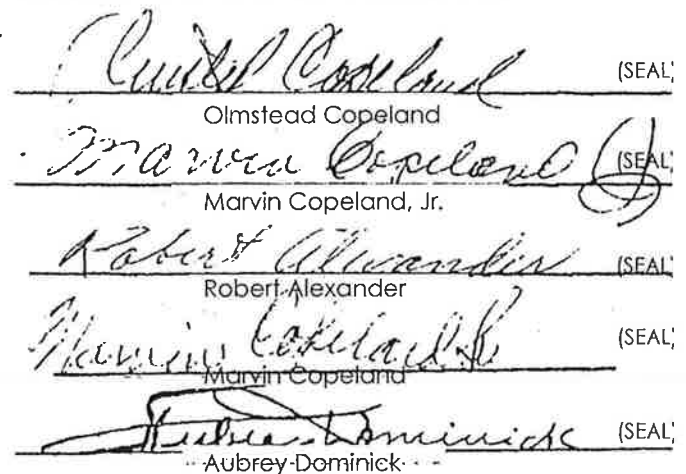 Copeland (SEAL)
Olmstead Copeland
Marvin Copeland Jr (SEAL)
Marvin Copeland, Jr.
Robert Alexander (SEAL)
Robert Alexander
Marvin Copeland Sr (SEAL)
Marvin Copeland
Aubrey Dominick (SEAL)
Aubrey Dominick